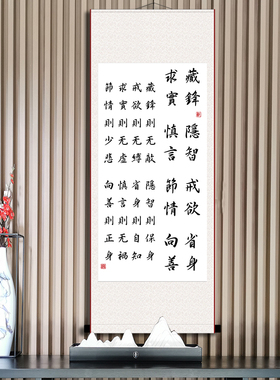 藏鋒 隱智 戒欲 省身
求實 慎言 節情 向善
藏鋒則无敵 隱智則保身
戒欲則无縛 省身則自知
求實則无虛 慎言則无禍
節情則少悲 向善則正身